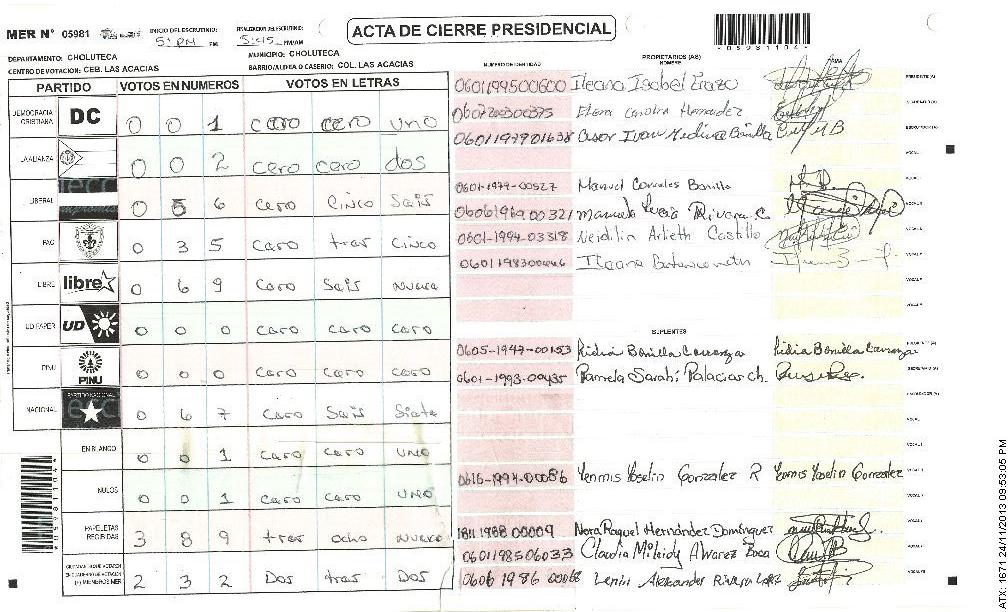 MER N° 05981
INICIO DEL ESCRUTINIO: 5: PM PM
FINALIZACION DEL ESCRUTINIO: 5:45 PM/AM
ACTA DE CIERRE PRESIDENCIAL
DEPARTAMENTO: CHOLUTECA
MUNICIPIO: CHOLUTECA
CENTRO DE VOTACION: CEB. LAS ACACIAS
BARRIO/ALDEA O CASERIO: COL. LAS ACACIAS
NUMERO DE IDENTIDAD PROPIETARIOS (AS) NOMBRE FIRMA
PARTIDO VOTOS EN NUMEROS VOTOS EN LETRAS
DEMOCRACIA CRISTIANA DC 0 0 1 cero cero uno
LA ALIANZA 0 0 2 cero cero dos
LIBERAL 0 5 6 cero cinco sais
PAC 0 3 5 caro tras cinco
LIBRE libre 0 6 9 caro sais nueva
UD FAPER UD 0 0 0 caro caro caro
PINU PINU 0 0 0 caro caro caro
NACIONAL PARTIDO NACIONAL 0 6 7 caro sais siata
EN BLANCO 0 0 1 caro caro uno
NULOS 0 0 1 caro caro uno
PAPELETAS RECIBIDAS 3 8 9 tras ocho nueva
2 3 2 Dos tras Dos
0601199500600 Ileana Isabel Erazo PRESIDENTE (A)
Elena Carolina Hernandez SECRETARIO (A)
0601197901638 Cesar Ivan Medina Bonilla ESCRUTADOR (A)
VOCAL
0601-1979-00527 Manuel Corrales Bonilla
0606196900321 Manuela Lucia Rivera C.
0601-1994-03318 Neidilin Arlieth Castillo
Ileana
SUPLENTES
0605-1947-00153 Lidia Bonilla Carranza Lidia Bonilla Carranza
0601-1993-00435 Pamela Sarahi Palacios ch.
0616-1994-00086 Yenmis Yoselin Gonzalez R Yenmis Yoselin Gonzalez
1811 1988 00009 Nora Raquel Hernández Domínguez
0601198506033 Claudia Milaidy Alvarez
0606 1986 00068 Lenin Alexander Rivera
ATX: 1671 24/11/2013 09:53:05 PM